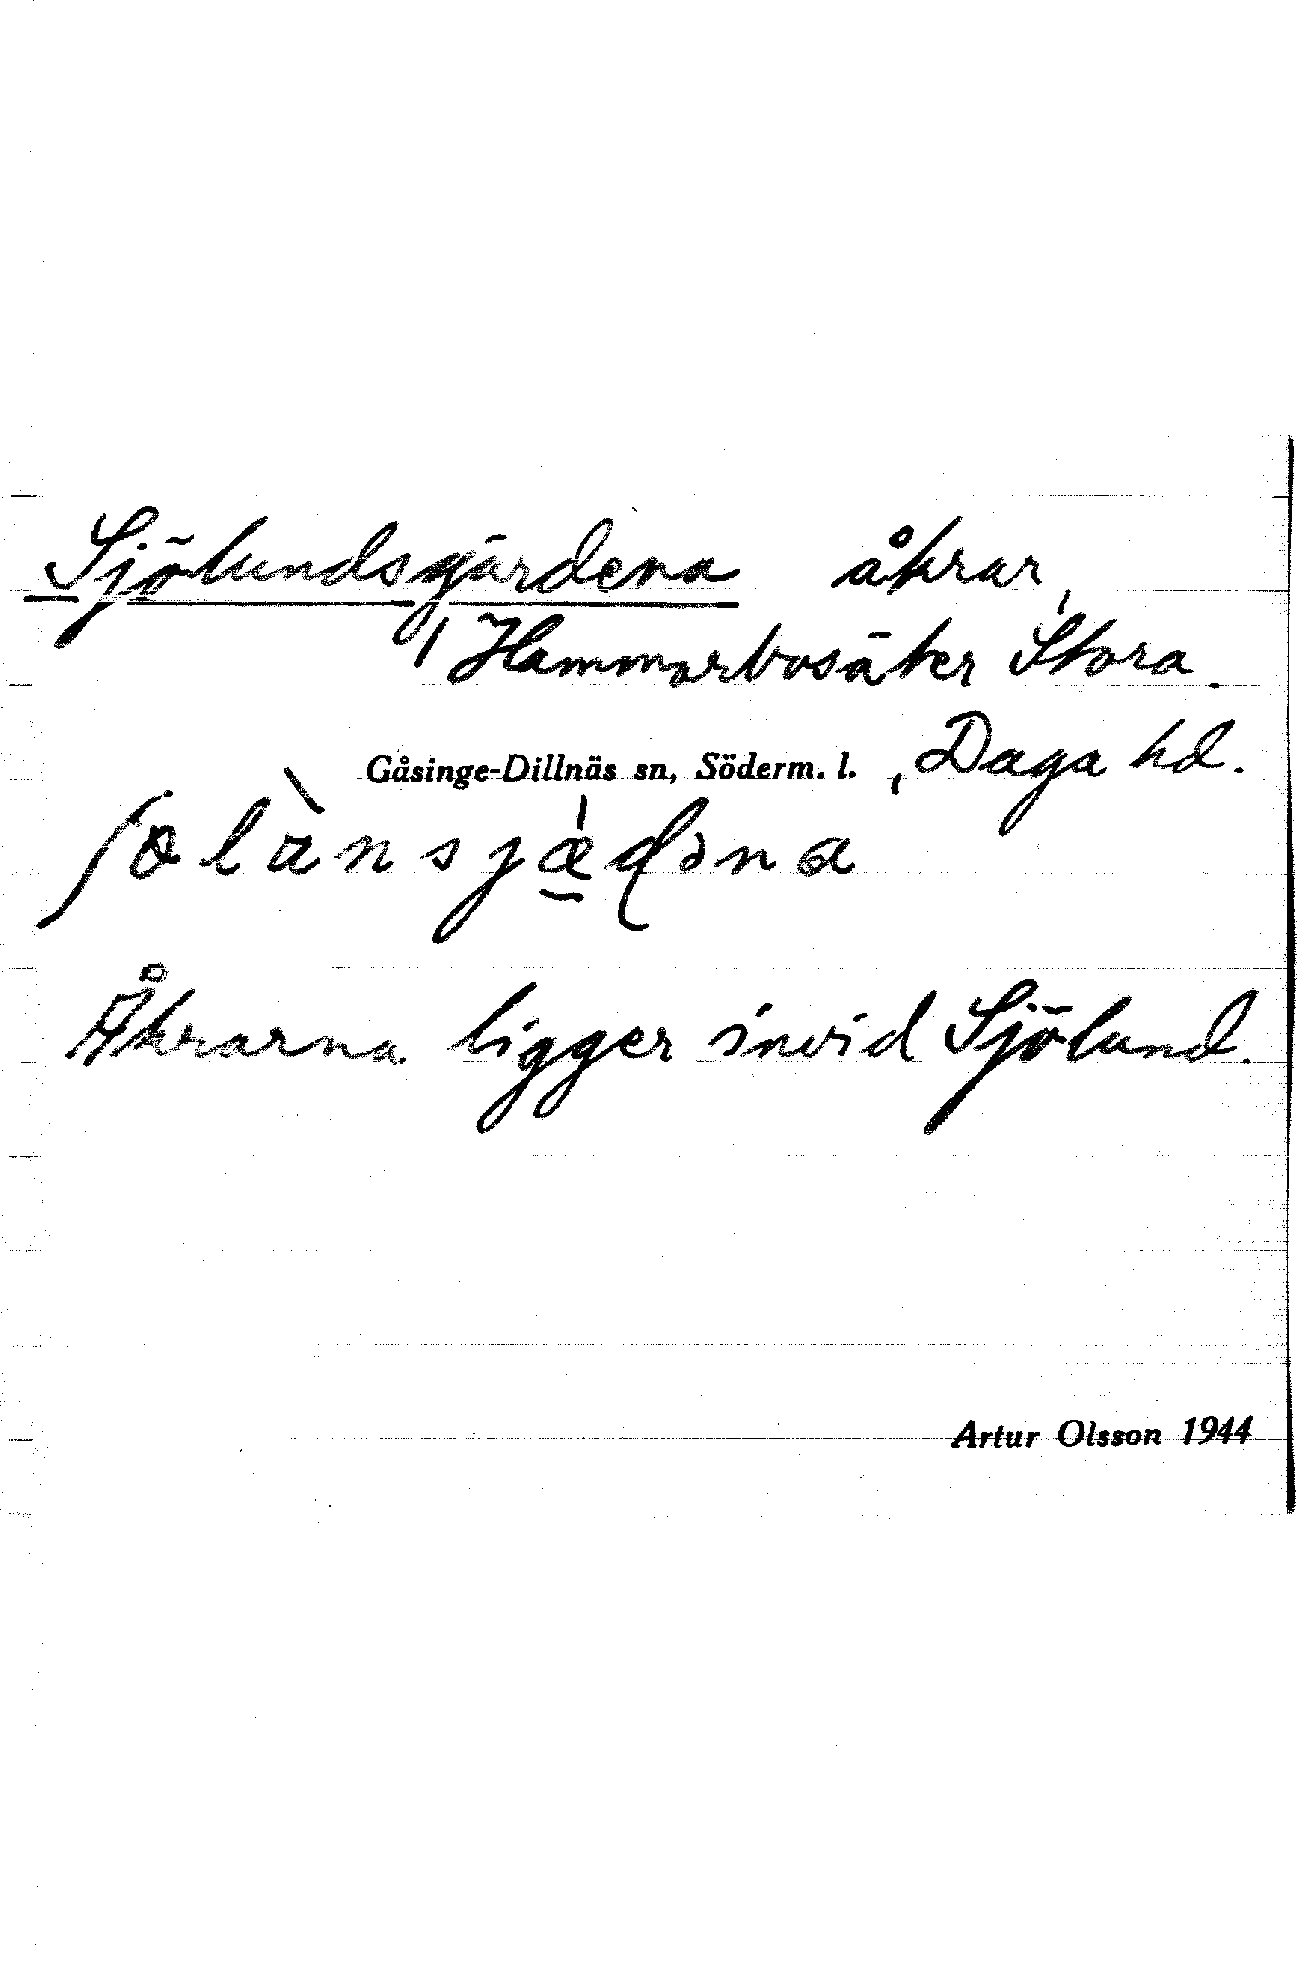 Sjölundsgärdena åkrar,
Hammarbosäter Stora.
Gåsinge-Dillnäs sn, Söderm. l., Daga hd.
Åkrarna ligger invid Sjölund.
Artur Olsson 1944